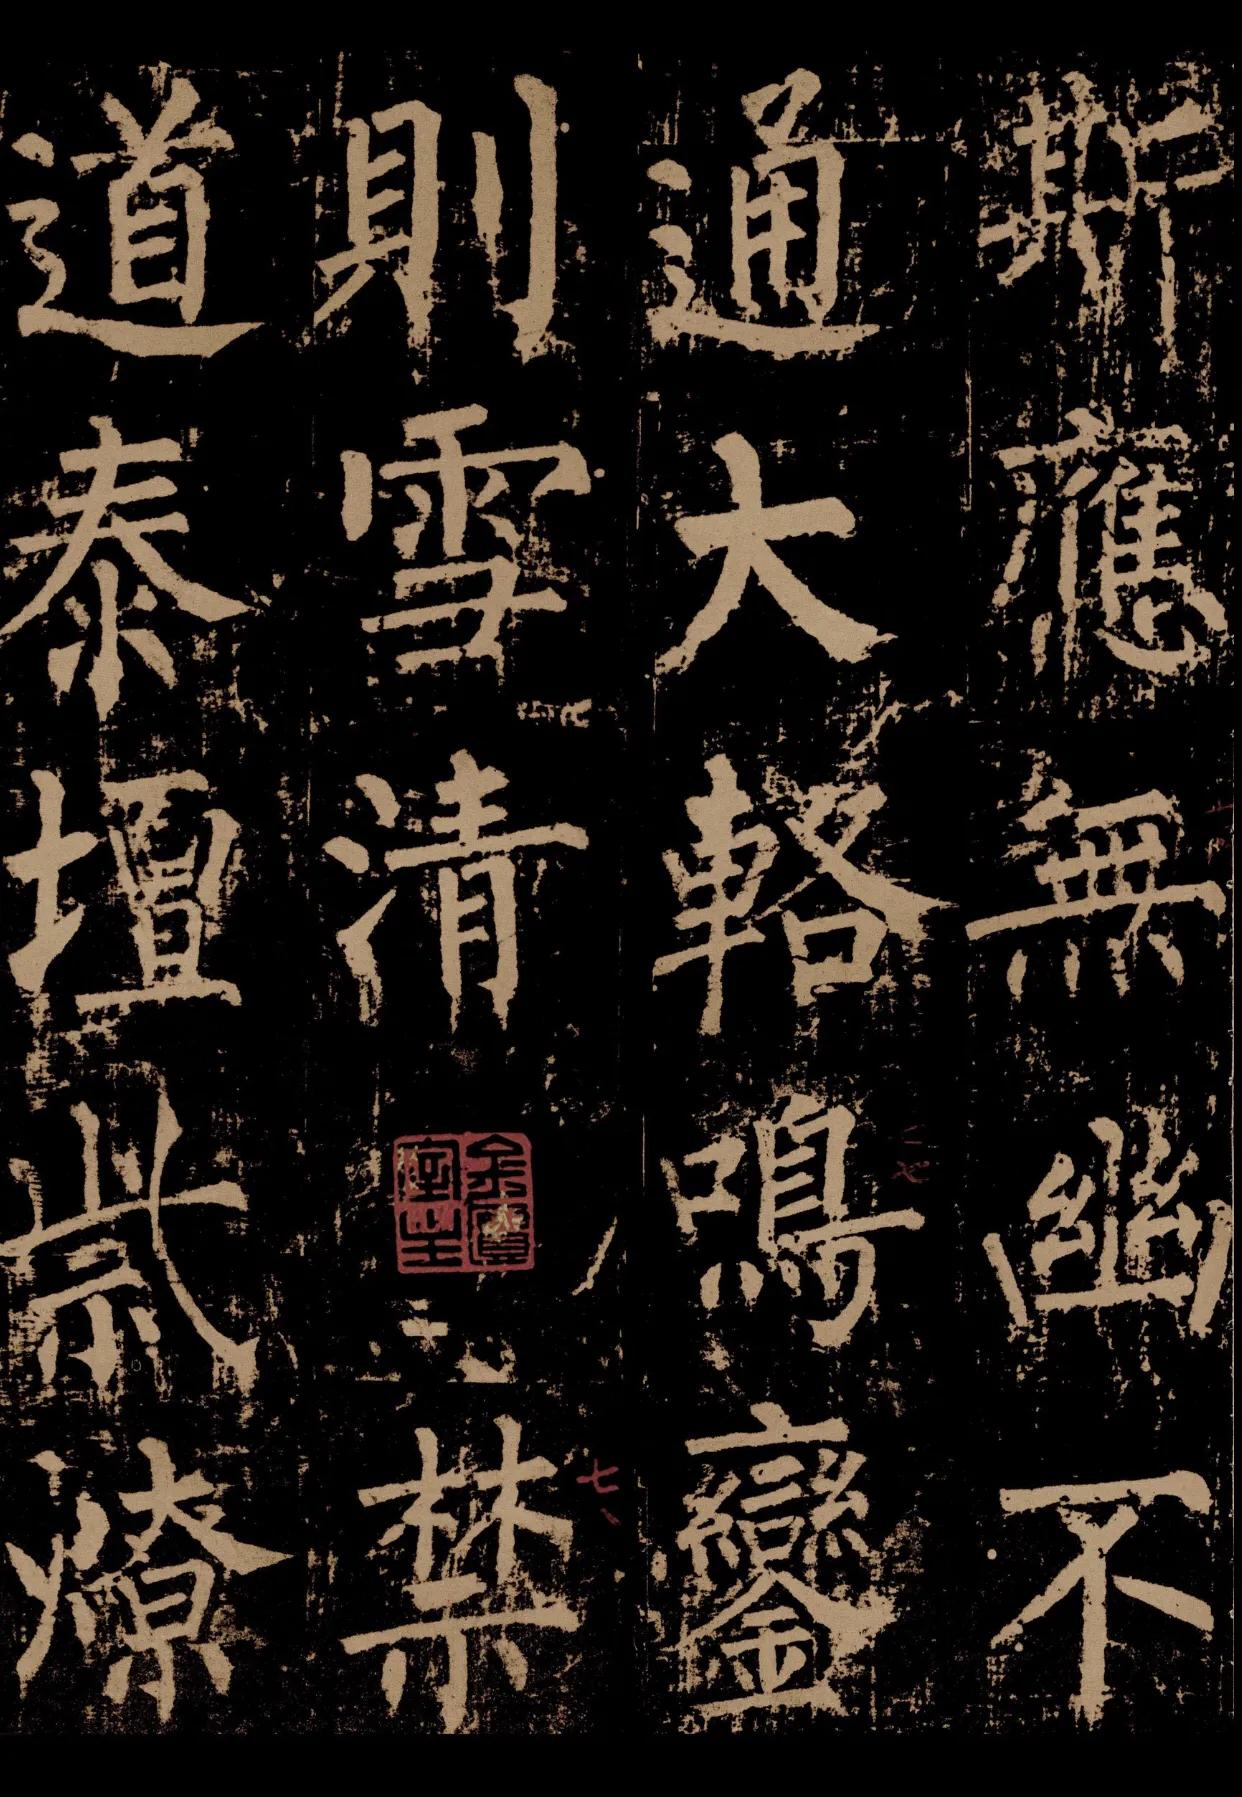 斯應無幽不
通大輅鳴鑾
則雪清禁
道泰壇紫燎
七